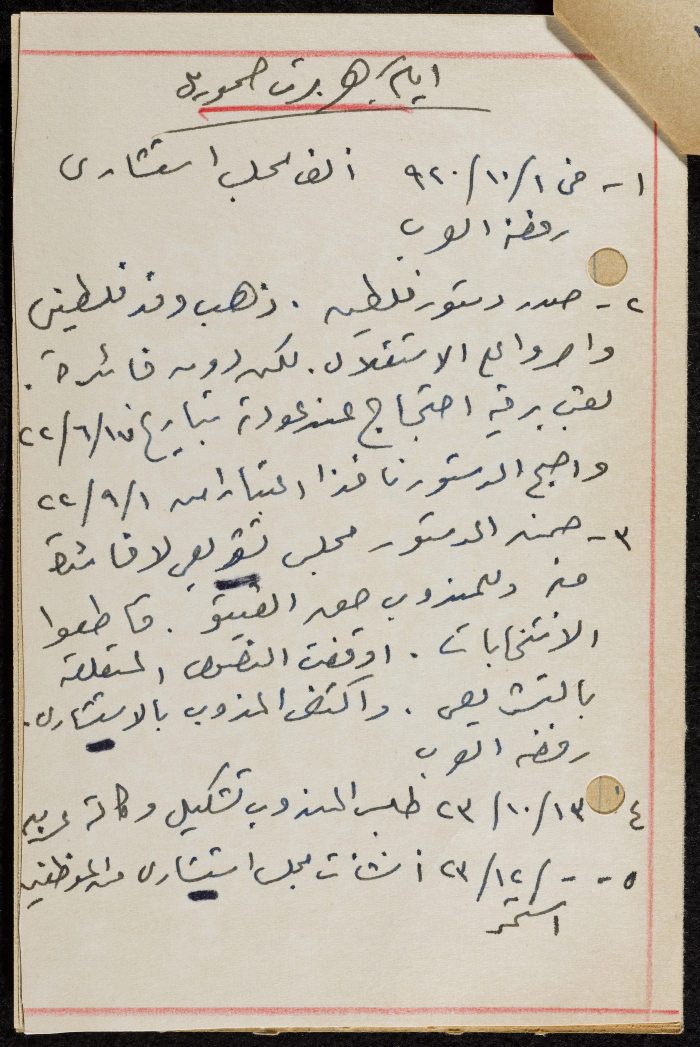 ايام هربرت صموريل
١- في ٩٢٠/١٠/١ الف مجلس استشاري
رفضه العرب
٢- صدر دستور فلسطين . ذهب وفد فلسطيني
واصروا على الاستقلال . لكن دون فائدة .
برقية احتجاج عند عودته بتاريخ ٢٢/٦/١٧
واصبح الدستور نافذا اعتبارا من ٢٢/٩/١
٣- ضمنه الدستور مجلس تشريعي لا فائدة
منه وللمندوب حق الفيتو . قاطعوا
الانتخابات . اوقفت النصوص المتعلقة
بالتشريعي . واكتفى المندوب بالاستشاري .
رفضه العرب
٤- ٢٣/١٠/١٣ طلب المندوب تشكيل وكالة عربيه
٥- - -/٢٣/١٢ أنشأت مجلس استشاري من الموظفين
استمر